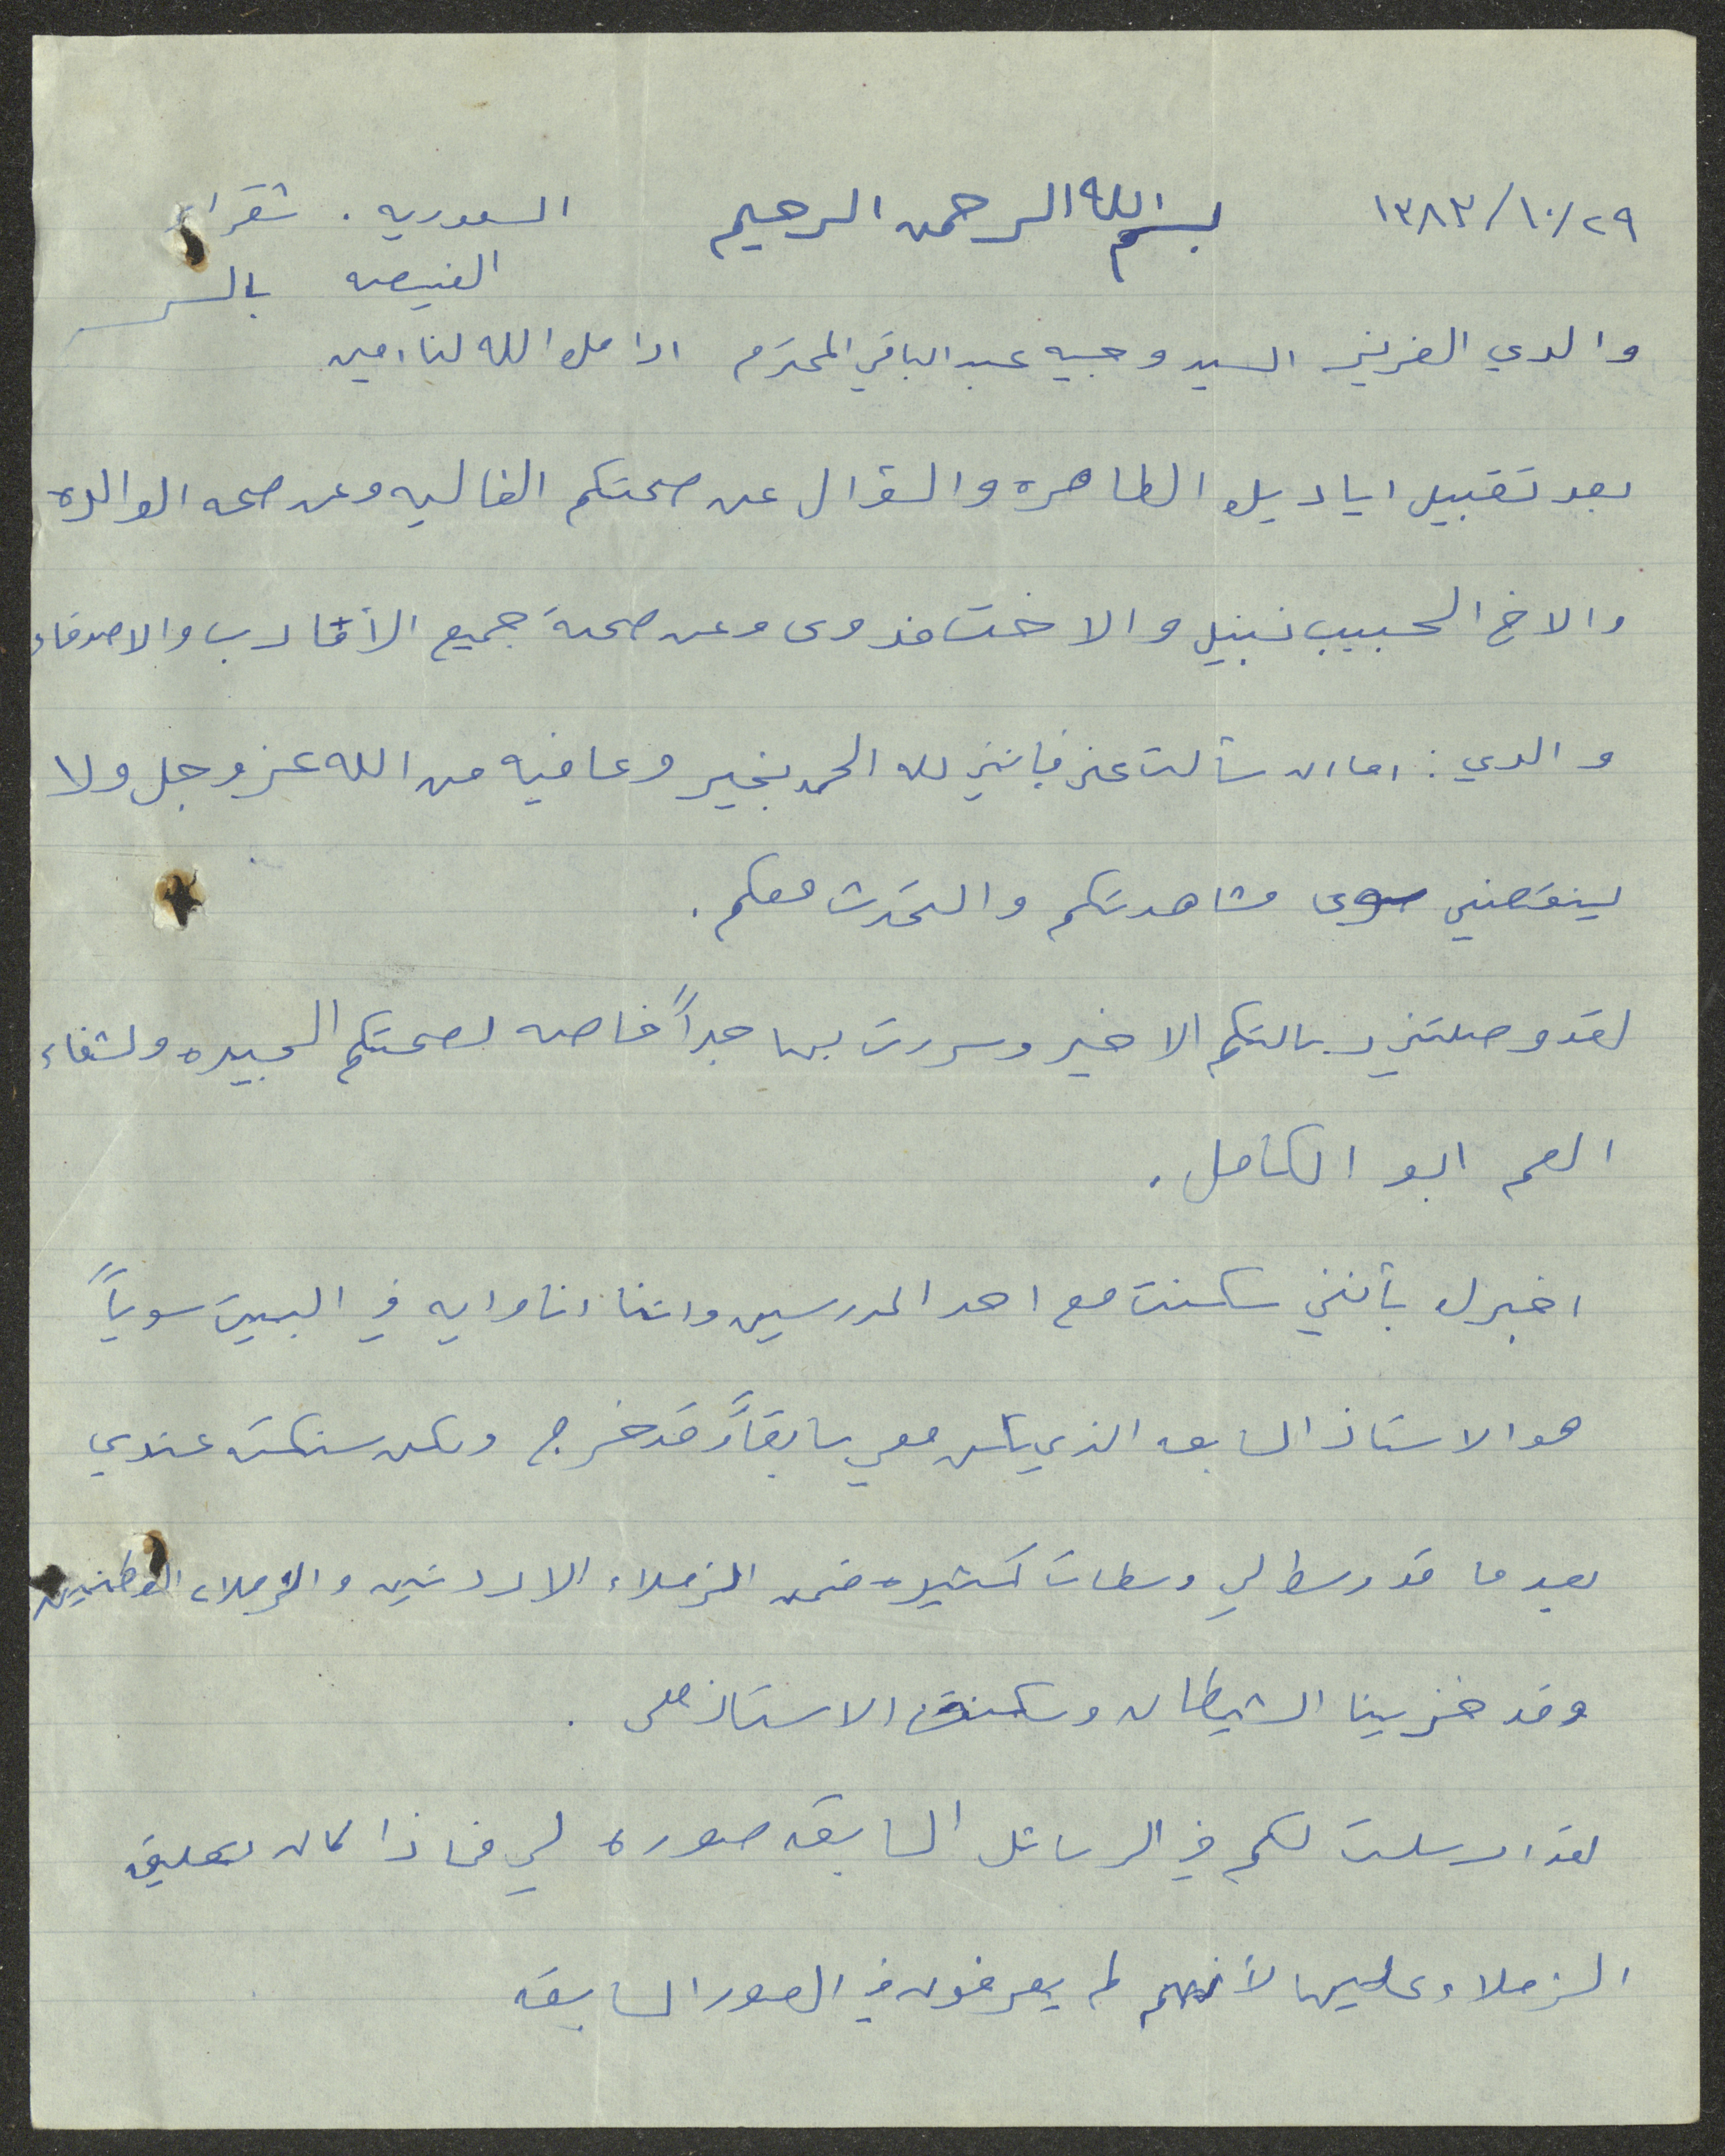 ١٣٨٣/١٠/٢٩ بسم الله الرحمن الرحيم السعوديه . شقراء
الفيضه بالسر
والدي العزيز السيد وجيه عبد الباقي المحترم ادامك الله لنا امين
بعد تقبيل اياديك الطاهره والسؤال عن صحتكم الغاليه وعن صحه الوالده
والاخ الحبيب نبيل والاخت فدوى وعن صحة جميع الأقارب والاصدقاء
والدي : اما ان سألت عني فإنني لله الحمد بخير وعافيه من الله عز وجل ولا
ينقصني سوى مشاهدتكم والتحدث معكم .
لقد وصلتني رسالتكم الاخير وسررت بها جداً خاصه لصحتكم الجيده ولشفاء
العم ابو الكامل .
اخبرك بأنني سكنت مع احد المدرسين واننا انا واياه في البيت سوياً
هو الاستاذ السابق الذي سكن معي سابقاً وقد خرج ولكن سكنت عندي
بعد ما قد وسط لي وسطات كثيره ضمن الزملاء الاردنين والزملاء الوطنيين
وقد خزينا الشيطان وسكنت الاستاذ معي .
لقد ارسلت لكم في الرسائل السابقه صوره لي فماذا كان تعليق
الزملاء عليها لأنهم لم يعرفون في الصور السابقه